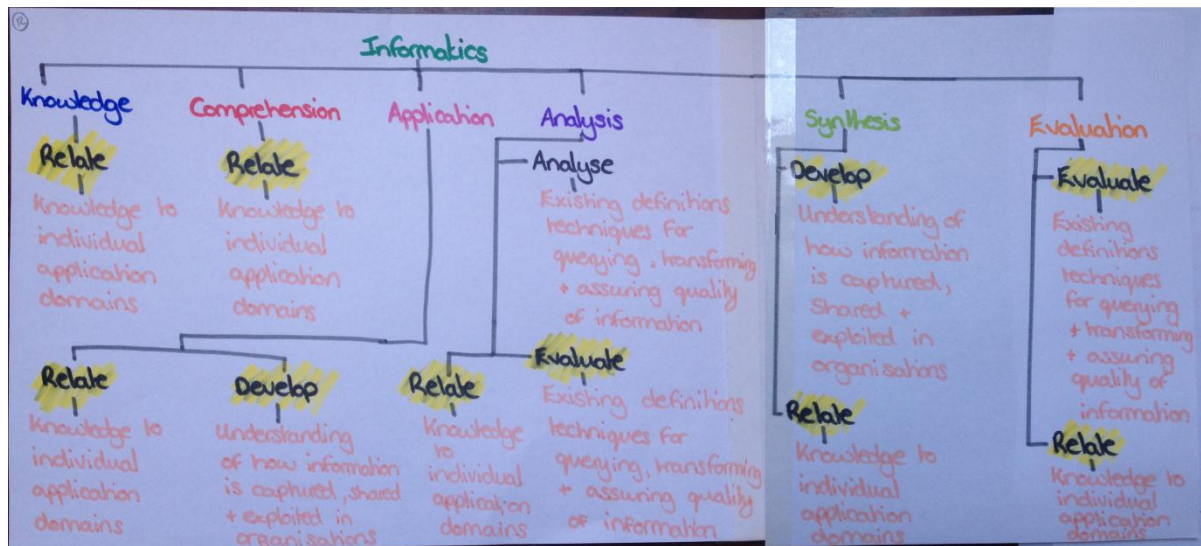 12
Informatics
Knowledge
Comprehension
Application
Analysis
Synthesis
Evaluation
Relate
Knowledge to
individual
application
domains
Relate
Knowledge to
individual
application
domains
Relate
Knowledge to
individual
application
domains
Develop
Understanding
of how information
is captured, shared
+ exploited in
organisations
Analyse
Existing definitions
techniques for
querying, transforming
+ assuring quality
of information
Relate
Knowledge
to
individual
application
domains
Evaluate
Existing definitions
techniques for
querying, transforming
+ assuring quality
of information
Develop
Understanding of
how information
is captured,
Shared +
exploited in
organisations
Relate
Knowledge to
individual
application
domains
Evaluate
Existing
definitions
techniques
for querying
+ transforming
+ assuring
quality of
information
Relate
Knowledge to
individual
application
domains